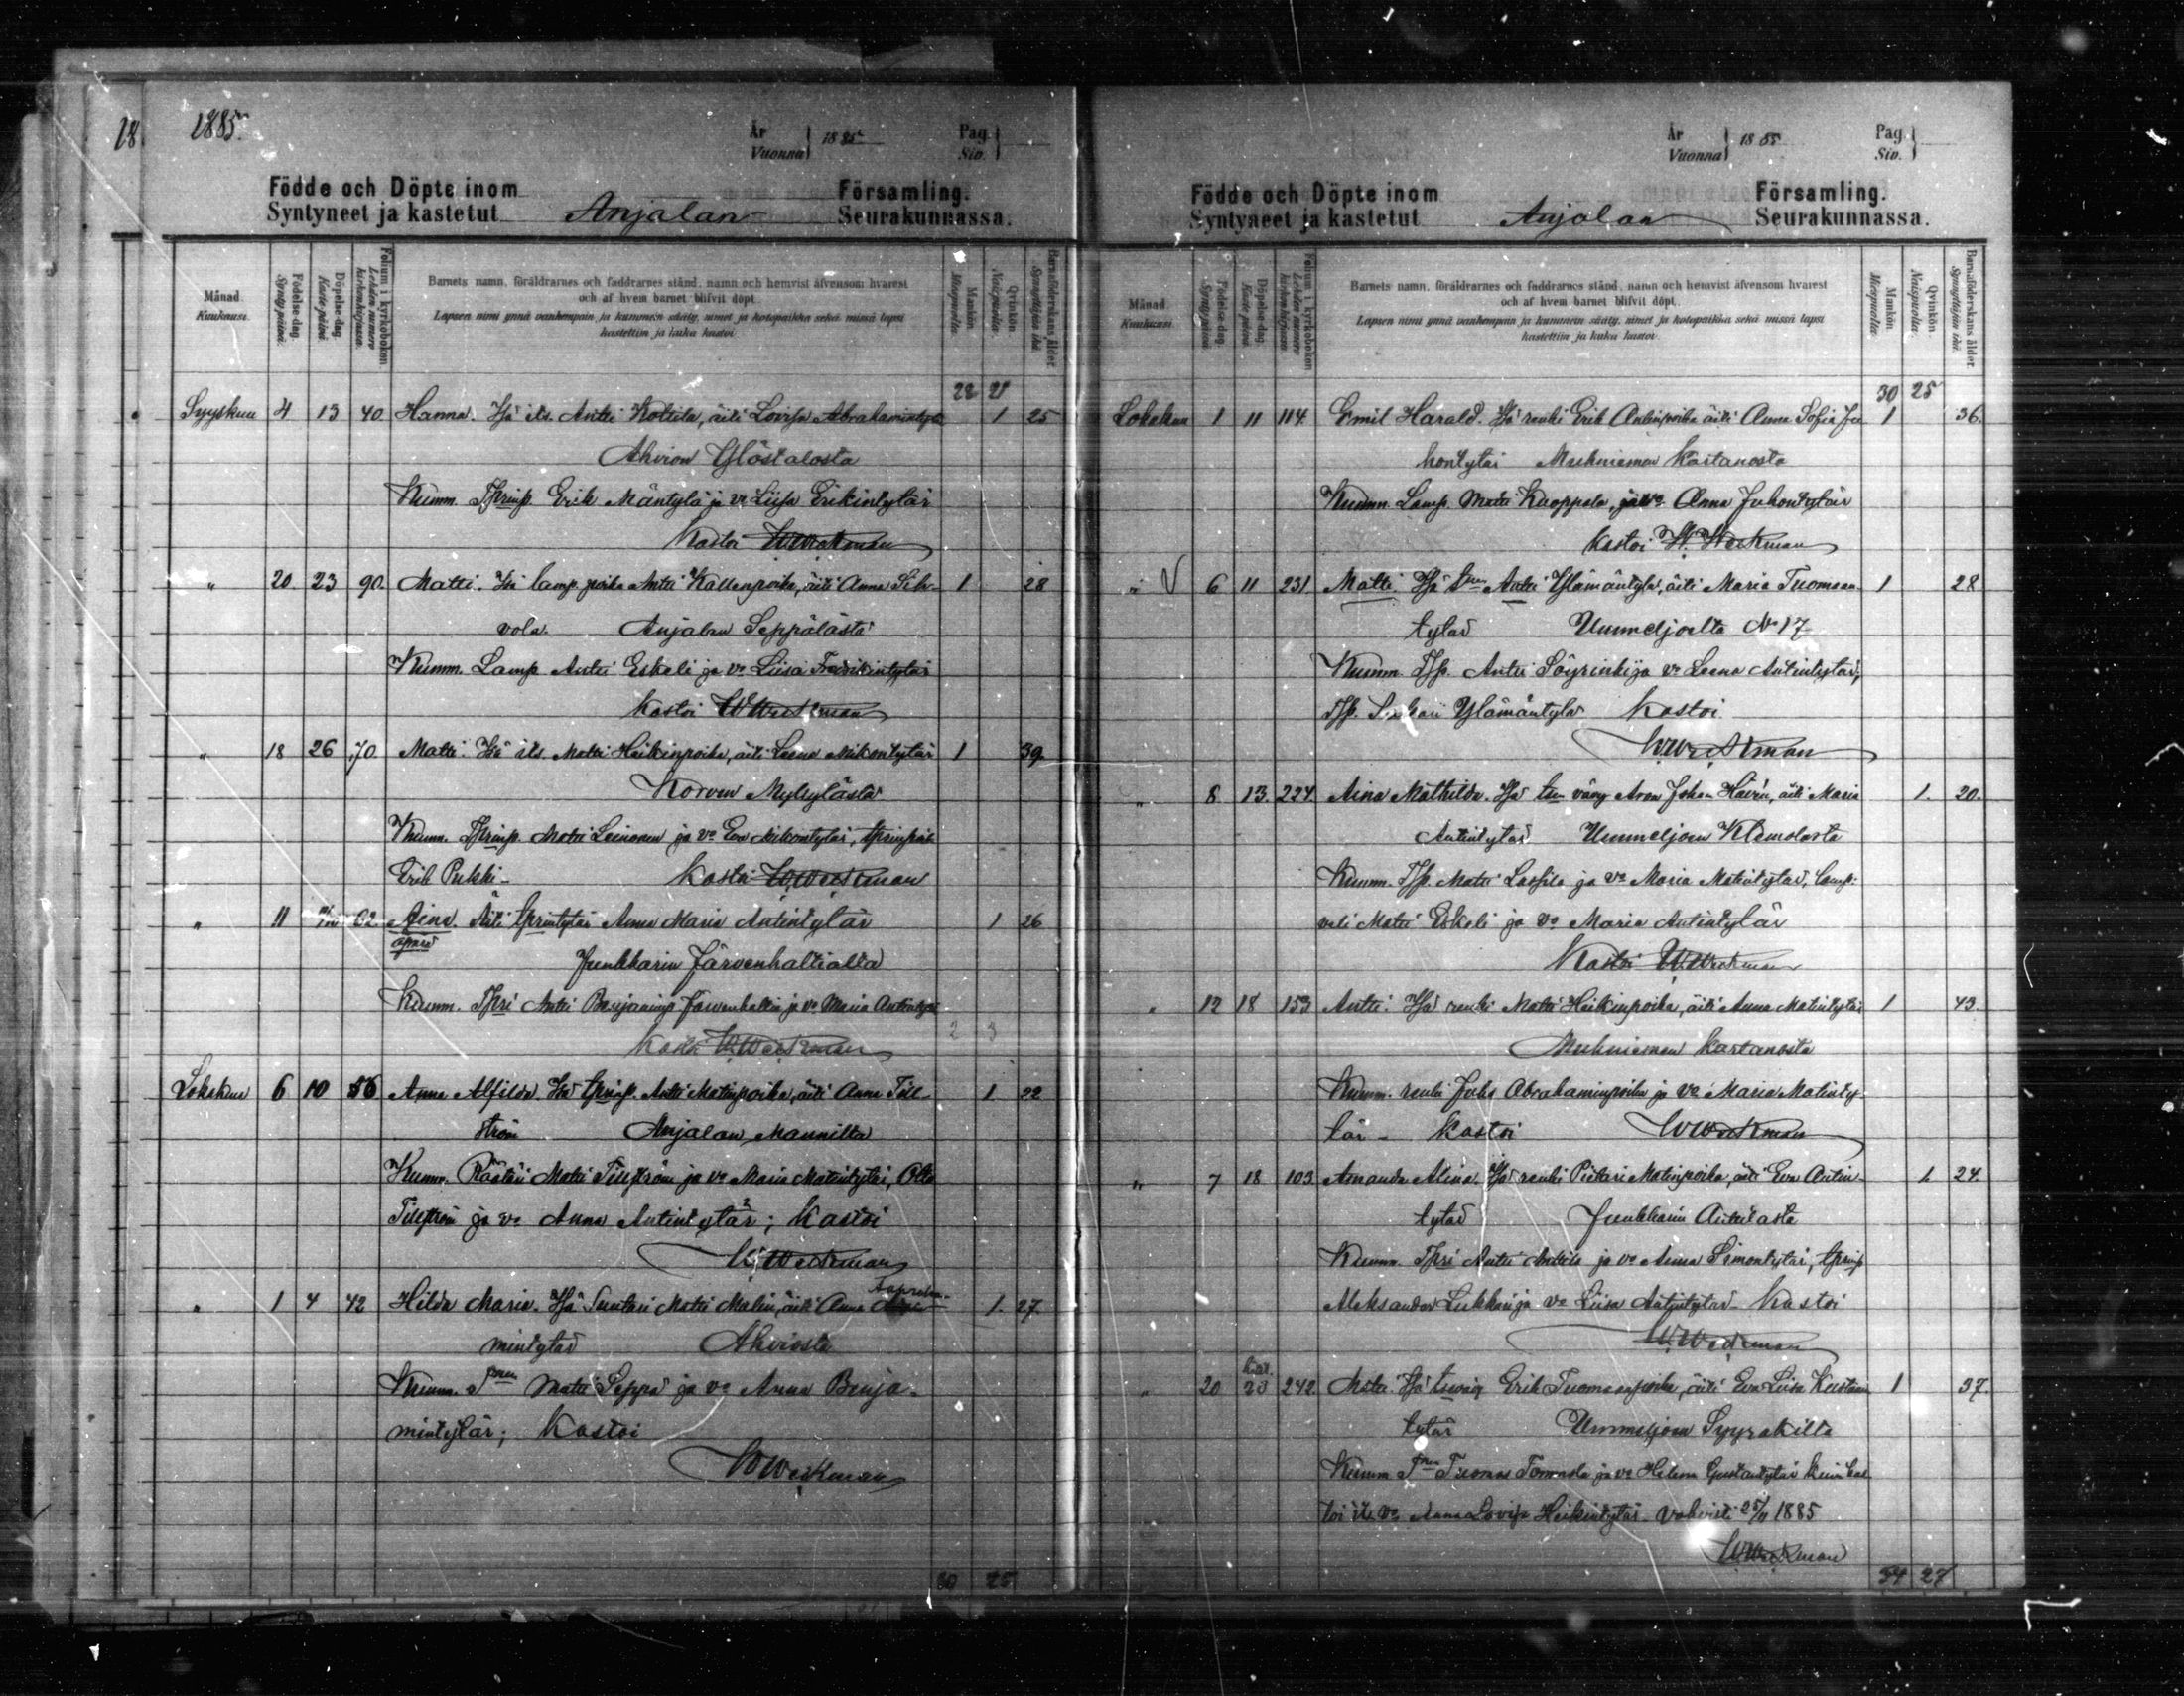 18. 1885.
År Vuonna 1885 Pag. Siv.
Födde och Döpte inom Anjalan Församling.
Syntyneet ja kastetut Seurakunnassa.
Månad Kuukausi.
Födelse-dag. Syntypäivä.
Döpelse-dag. Kastepäivä.
Folium i kyrkoboken Lehden numero kirkonkirjassa.
Barnets namn, föräldrarnes och faddrarnes stånd, namn och hemvist äfvensom hvarest
och af hvem barnet blifvit döpt.
Lapsen nimi ynnä vanhempain ja kummein sääty, nimet ja kotopaikka sekä missä lapsi
kastettiin ja kuka kastoi.
Mankön Miespuolia.
Qvinkön Naispuolia.
Barnaföderskans ålder Synnyttäjän ikä.
22 21
Syyskuu 4 13 40 Hanna. Isä its. Antti Kottila, äiti Lovisa Abrahamintytär 1 25
Ahvion Ylöstalosta
Kumm. Erik Mäntylä ja vo Liisa Erikintytär
Kastoi W Weckman
" 20. 23 90. Matti. Isä lamp. poika Antti Kallenpoika, äiti Anna Sih- 1 28
vola. Anjalan Seppälästä
Kumm. Lamp. Antti Eskeli ja vo Liisa Fredrikintytär
Kastoi W Weckman
" 18 26 70. Matti. Isä its. Matti Heikinpoika, äiti Leena Mikontytär 1 39.
Korven Myllylästä
Kumm. Matti Leinonen ja vo Eva Mikontytär,
Erik Pukki Kastoi W Weckman
" 11 62. Aina. Äiti Anna Maria Antintytär 1 26
äpärä
Junkkarin Järvenhaltialta
Kumm. Antti Benjaminp. Järvenhaltia ja vo Maria Antintytär
Kastoi W Weckman 2 3
Lokakuu 6 10 56 Anna Alfilda. Isä Antti Matinpoika, äiti Anna Till- 1 22
ström Anjalan Mannilta
Kumm. Räätäri Matti Tillström ja vo Maria Matintytär, Otto
Tillström ja vo Anna Antintytär; Kastoi
W Weckman
" 1 4 42 Hilda Maria. Isä Suutari Matti Malin, äiti Anna 1. 27.
mintytär Ahviosta
Kumm. Matti Seppä ja vo Anna Benja-
mintytär; Kastoi
W Weckman
30 25
År Vuonna 1885 Pag. Siv.
Födde och Döpte inom Anjalan Församling.
Syntyneet ja kastetut Seurakunnassa.
Månad Kuukausi.
Födelse-dag. Syntypäivä.
Döpelse-dag. Kastepäivä.
Folium i kyrkoboken Lehden numero kirkonkirjassa.
Barnets namn, föräldrarnes och faddrarnes stånd, namn och hemvist äfvensom hvarest
och af hvem barnet blifvit döpt.
Lapsen nimi ynnä vanhempain ja kummein sääty, nimet ja kotopaikka sekä missä lapsi
kastettiin ja kuka kastoi.
Mankön Miespuolia.
Qvinkön Naispuolia.
Barnaföderskans ålder. Synnyttäjän ikä.
30 25
Lokakuu 1 11 114. Emil Harald. Isä renki Erik Antinpoika äiti Anna Sofia Ju- 1 36.
hontytär Muhniemen Kartanosta
Kumm. Lamp. Matti Kuoppala, ja vo Anna Juhontytär
Kastoi W. Weckman
" V 6 11 231 Matti. Isä Antti Ylämäntylä, äiti Maria Tuomaan 1 28
tytär Ummeljoelta No 17
Kumm. Antti Söyrinki ja vo Leena Antintytär,
Ylämäntylä Kastoi
W Weckman
" 8 13. 224. Aina Mathilda. Isä Johan Haven, äiti Maria 1. 20.
Antintytär Ummeljoen Klemolasta
Kumm. Matti Lassila ja vo Maria Matintytär, lamp.
veli Matti Eskeli ja vo Maria Antintytär
Kastoi W. Weckman
" 12 18 153 Antti. Isä renki Matti Heikinpoika, äiti Anna Matintytär 1 43.
Muhniemen Kartanosta
Kumm. renki Juho Abrahaminpoika ja vo Maria Matinty-
tär - Kastoi W Weckman
" 7 18 103 Amanda Alina. Isä renki Pietari Matinpoika, äiti Eva Antin- 1. 24.
tytär Junkkarin Anttilasta
Kumm. Antti Anttila ja vo Anna Simontytär,
Aleksander Lukkari ja vo Liisa Antintytär. Kastoi
W Weckman
" 20 23 242 Matti. Isä Erik Tuomaanpoika, äiti Eva Liisa Kustaan 1 37.
tytär Ummeljoen Syyrakilta
Kumm. Tuomas Tommola ja vo Helena Gustavtytär
vo Anna Lovisa Heikintytär. Vahvisti 25/11 1885
W Weckman
34 27